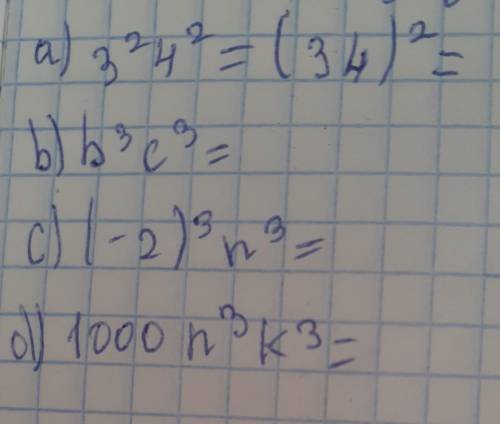 a) 3²4² = (34)² =
b) b³c³ =
c) (-2)³n³ =
d) 1000 n³k³ =